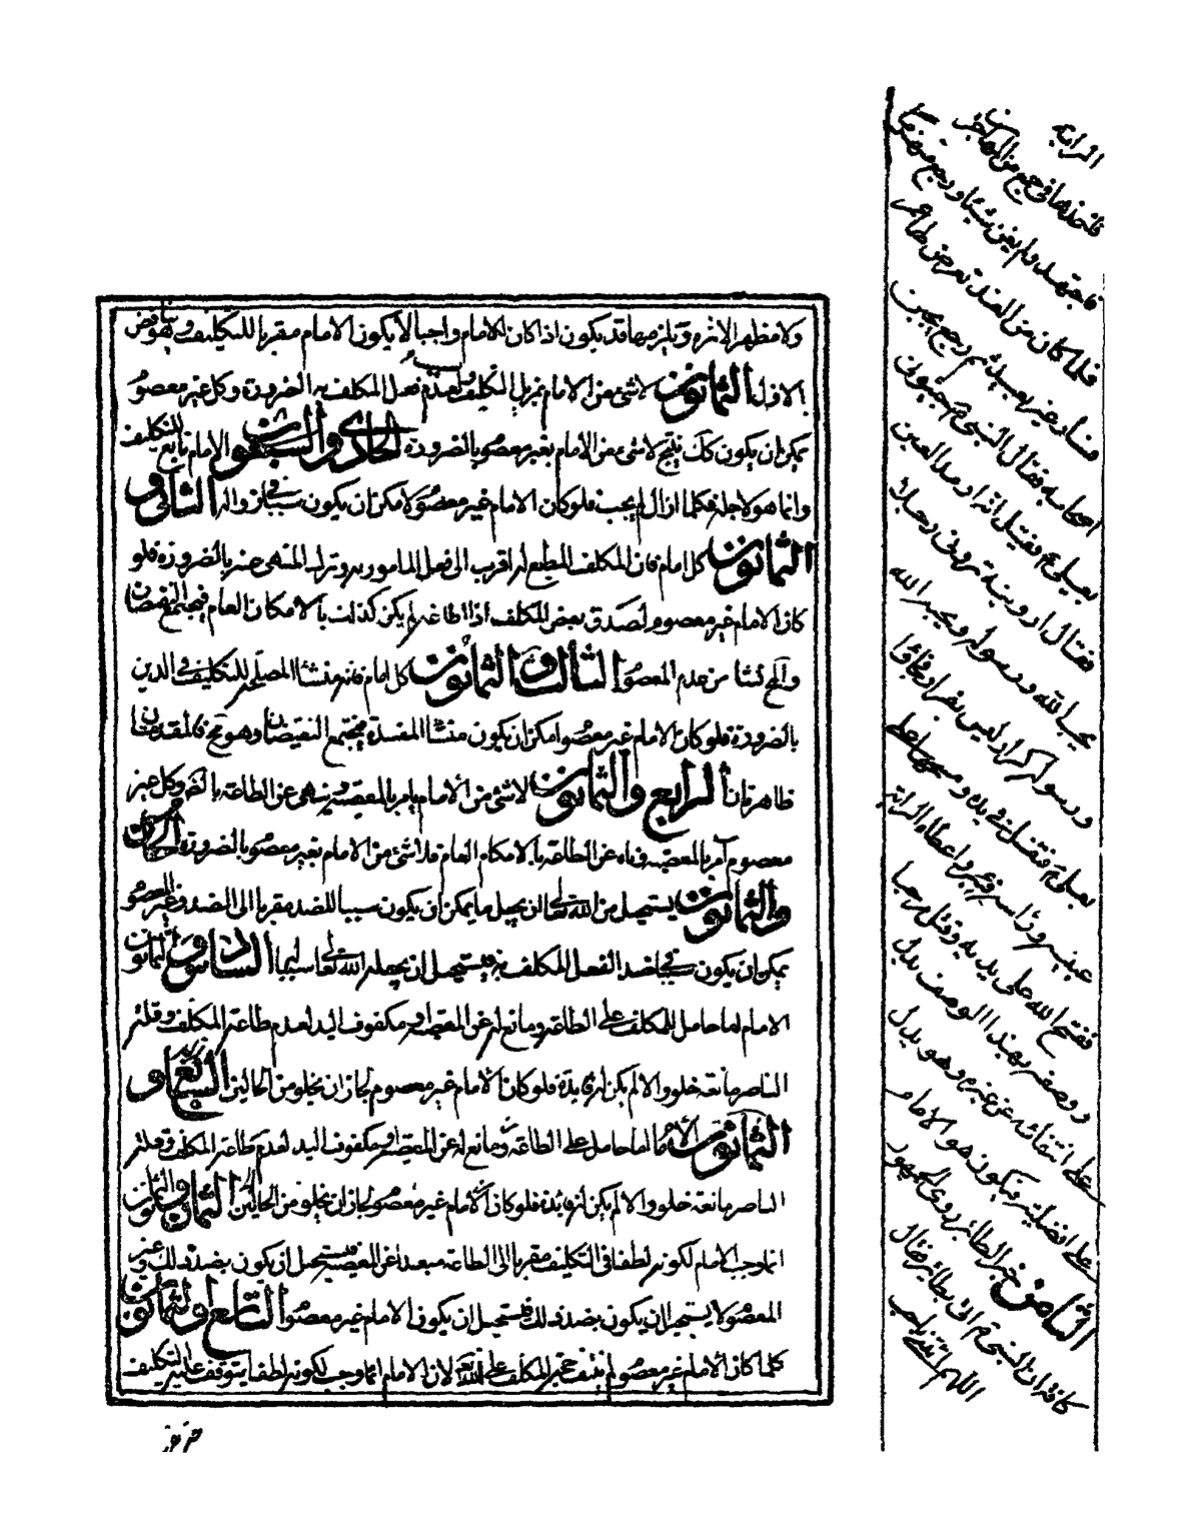 ولا مظهرا لاثره ويلزمها قد يكون اذا كان الامام واجبا لا يكون الامام مقربا للتكليف وهو يناقض
الاول الثمانون لا شئ من الامام بمزيل التكليف لعدم فعل المكلف به بالضرورة وكل غير معصوم
يمكن ان يكون كك ينتج لا شئ من الامام بغير معصوم بالضرورة الحادى والثمانون الامام تابع للتكليف
وانما هو لاجله فكلما زال لم يجب فلو كان الامام غير معصوم لامكن ان يكون سببا فى زواله الثانى و
الثمانون كل امام فان المكلف المطيع له اقرب الى فعل المامور به وترك المنهى عنه بالضرورة فلو
كان الامام غير معصوم لصدق بعض المكلف اذا اطاعه لم يكن كذلك بالامكان العام فيجتمع النقيضان
والمح نشا من عدم المعصوم الثالث والثمانون كل امام فانه منشأ المصلحة للتكليف فى الدين
بالضرورة فلو كان الامام غير معصوم امكن ان يكون منشأ المفسدة فيجتمع النقيضان وهو مح فالمقدمتان
ظاهرتان الرابع والثمانون لا شئ من الامام بامر بالمعصية وينهى عن الطاعة بالضرورة وكل غير
معصوم آمر بالمعصية وناه عن الطاعة بالامكان العام فلا شئ من الامام بغير معصوم بالضرورة الخامس
والثمانون يستحيل من الله تعالى ان يجعل ما يمكن ان يكون سببا للضد مقربا الى الضد وغير المعصوم
يمكن ان يكون سببا فى ضد الفعل المكلف به فيستحيل ان يجعله الله تعالى سببا السادس والثمانون
الامام اما حامل للمكلف على الطاعة ومانع له عن المعصية او مكفوف اليد لعدم طاعة المكلف وقلة
الناصر مانعة خلو والا لم يكن له فايدة فلو كان الامام غير معصوم لجاز ان يخلو من الحالين السابع و
الثمانون الامام اما حامل على الطاعة ومانع له عن المعصية او مكفوف اليد لعدم طاعة المكلف وقلة
الناصر مانعة خلو والا لم يكن له فايدة فلو كان الامام غير معصوم لجاز ان يخلو من الحالين الثامن والثمانون
انما وجب الامام لكونه لطفا فى التكليف مقربا الى الطاعة مبعدا عن المعصية فيستحيل ان يكون بضد ذلك وغير
المعصوم لا يستحيل ان يكون بضد ذلك فيستحيل ان يكون الامام غير معصوم التاسع والثمانون
كلما كان الامام غير معصوم لم ينتف حجة المكلف على الله تعالى لان الامام انما وجب لكونه لطفا يتوقف عليه التكليف
الراية
فاخذها فى جمع من المهاجرين
فاجتهد ولم يغن شيئا ورجع منهزما
فلما كان من الغد تعرض لها عمر
فسار غير بعيد ثم رجع يجبن
اصحابه فقال النبى ص جيئونى
بعلى ع فقيل انه ارمد العين
فقال ارونيه ترونى رجلا
يحب الله ورسوله ويحبه الله
ورسوله كرار ليس بفرار فجاؤا
بعلى ع فتفل فى يده ومسحها على
عينيه وراسه فبرء واعطاه الراية
ففتح الله على يديه وقتل مرحبا
ووصفه بهذا الوصف يدل
على انتفائه عن غيره وهو يدل
على افضليته فيكون هو الامام
الثامن خبر الطائر روى الجمهور
كافة ان النبى ص اتى بطائر فقال
اللهم ائتنى باحب